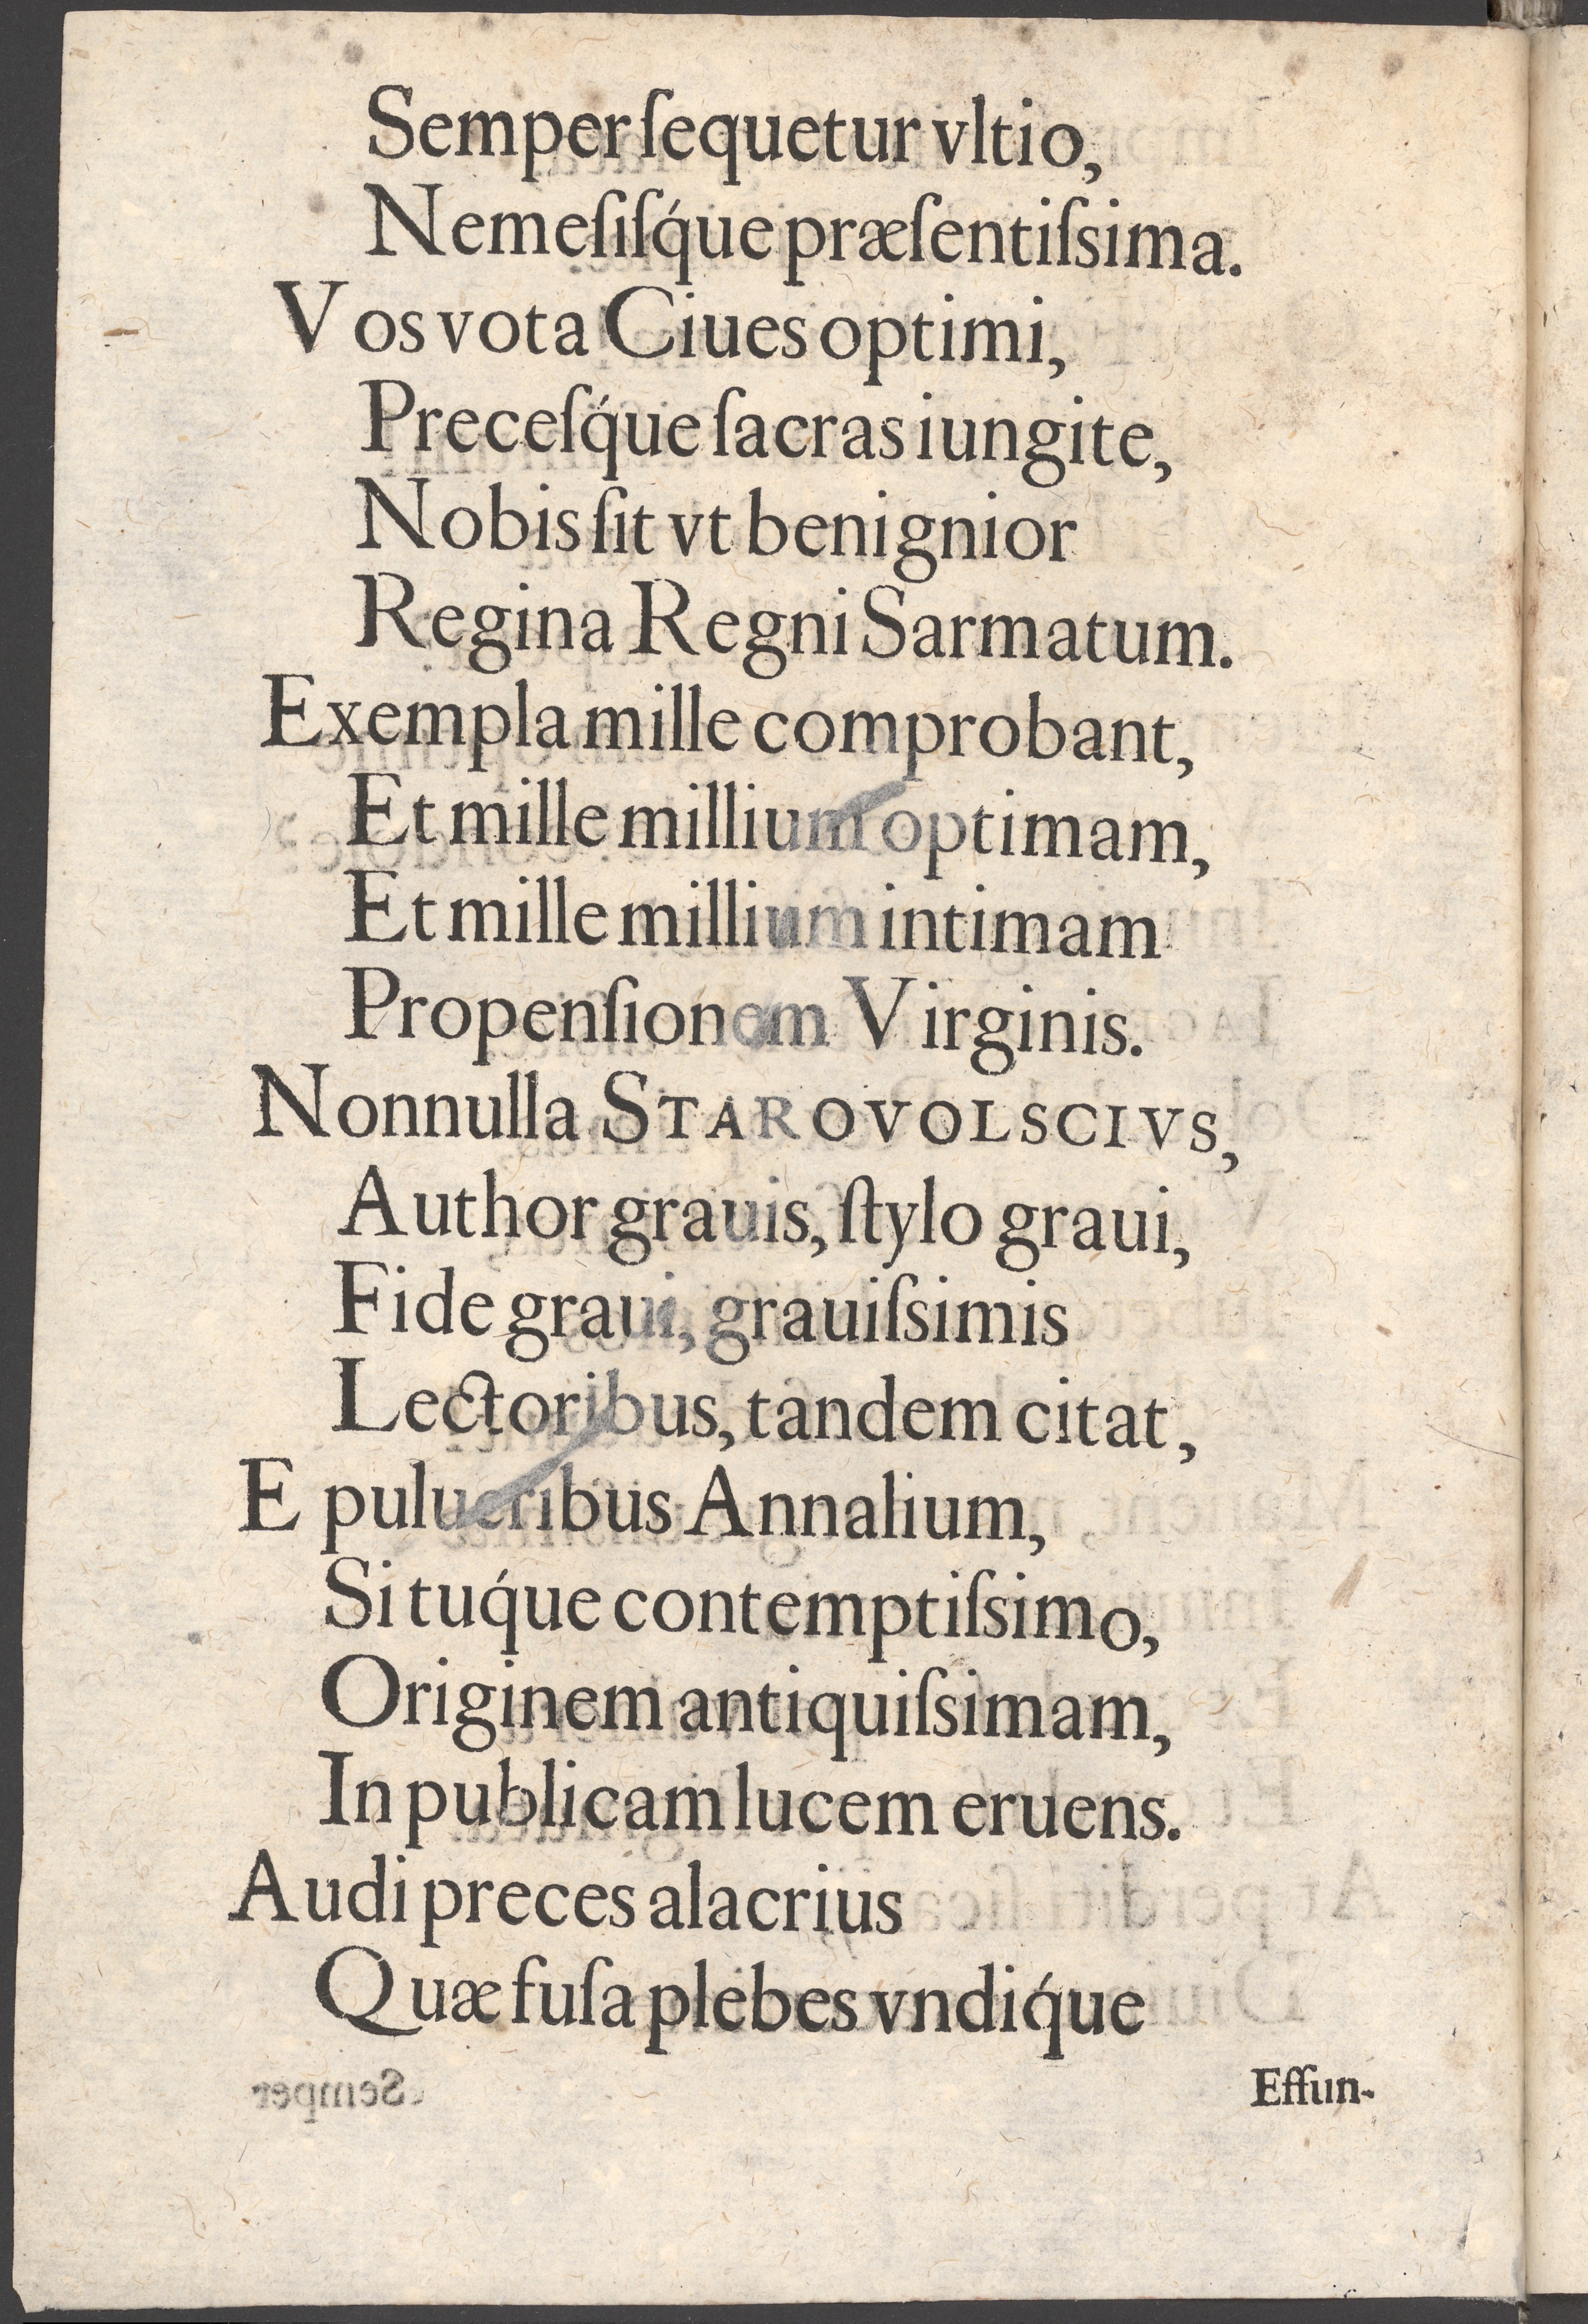 Semper ſequetur vltio,
Nemeſiſq́ue præſentiſsima.
Vos vota Ciues optimi,
Preceſq́ue ſacras iungite,
Nobis ſit vt benignior
Regina Regni Sarmatum.
Exempla mille comprobant,
Et mille millium optimam,
Et mille millium intimam
Propenſionem Virginis.
Nonnulla STAROVOLSCIVS,
Author grauis, ſtylo graui,
Fide graui, grauiſsimis
Lectoribus, tandem citat,
E pulueribus Annalium,
Situq́ue contemptiſsimo,
Originem antiquiſsimam,
In publicam lucem eruens.
Audi preces alacrius
Quæ fuſa plebes vndiq́ue
Effun-